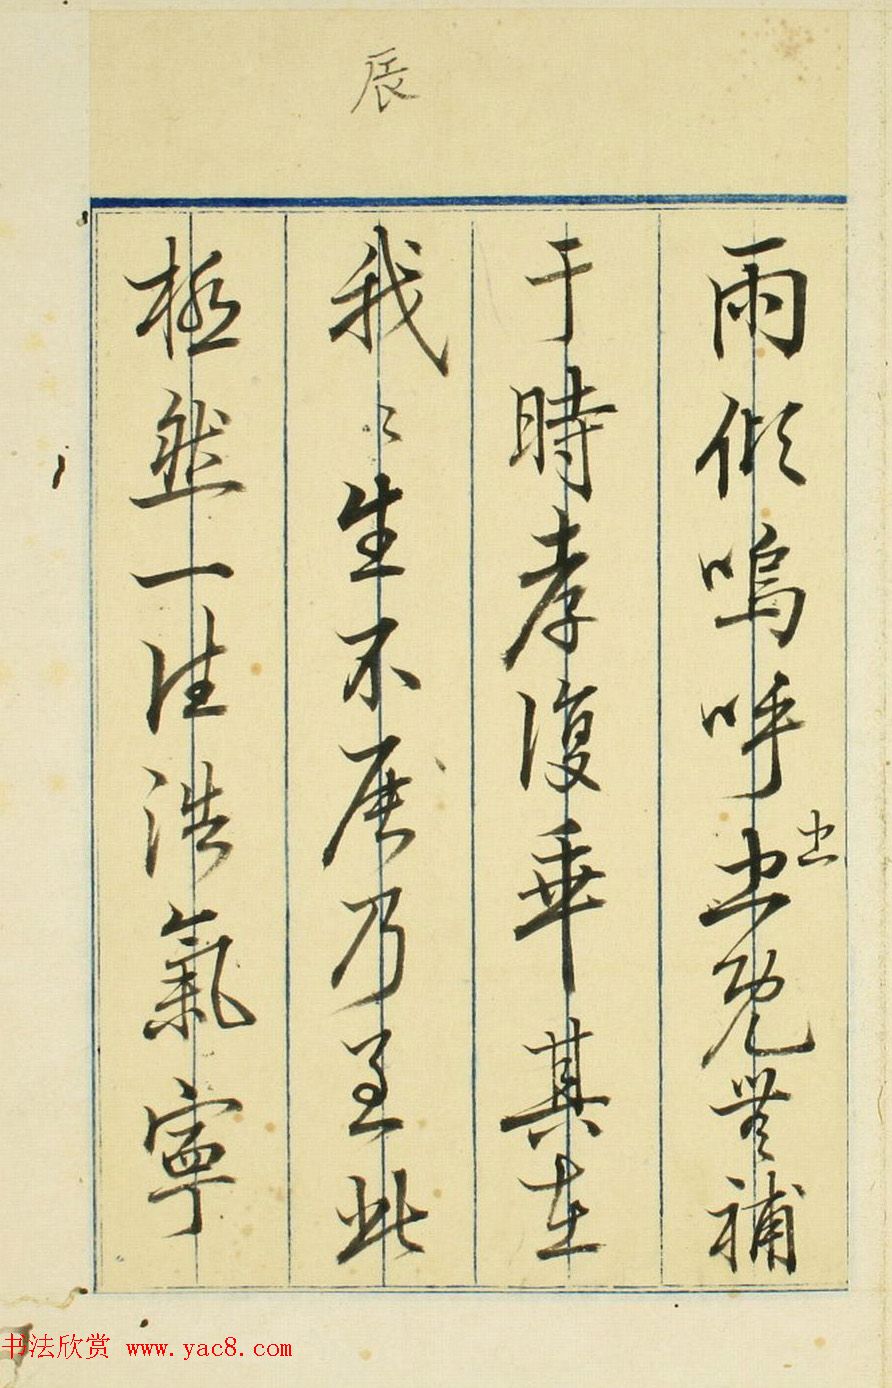 辰
雨傾嗚呼忠既無補
忠
于時孝復乖其在
我〻生不辰乃至此
極然一往浩氣寧
书法欣赏 www.yac8.com